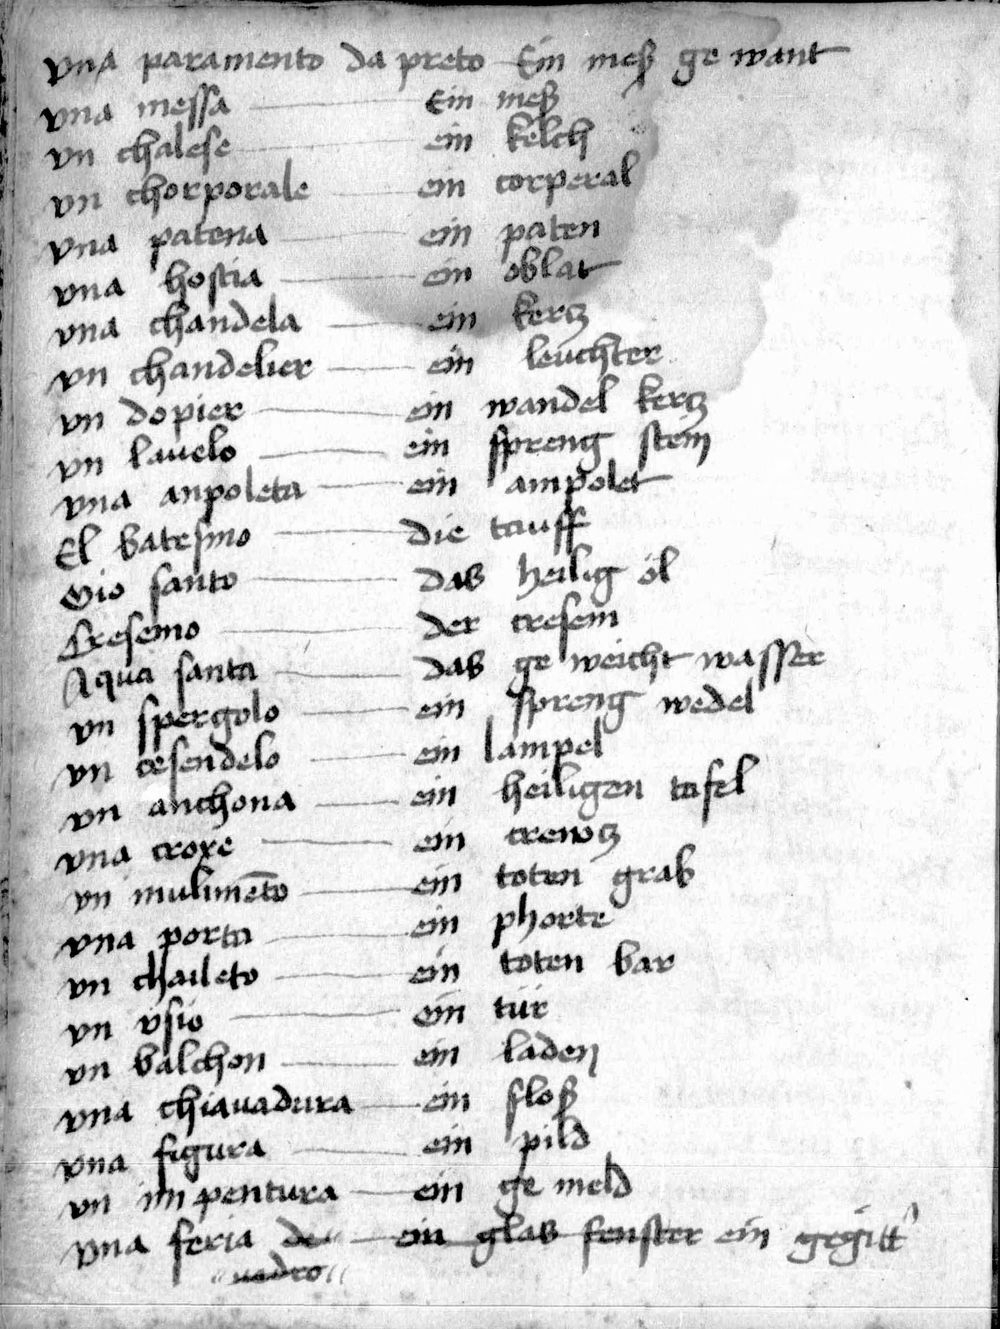 vna paramento da preto Ein meß ge want
vna messa ein meß
vn chalese ein kelch
vn chorporale ein corperal
vna patena ein paten
vna hostia ein oblat
vna chandela ein kertz
vn chandelier ein leuchter
vn dopier ein wandel kertz
vn lauelo ein spreng stein
vna anpoleta ein ampolet
El batesmo die tauff
Oio santo das heilig öl
Cresemo der cresem
Aqua santa das ge weicht wasser
vn spergolo ein spreng wedel
vn cesendelo ein lampel
vn anchona ein heiligen tafel
vna croxe ein creutz
vn mulimēto ein toten grab
vna porta ein phorte
vn chaileto ein toten bar
vn vsio ein tür
vn balchon ein laden
vna chiauadura ein sloß
vna figura ein pild
vn impentura ein ge meld
vna feria de ein glas fenster ein gegitt'
uedro